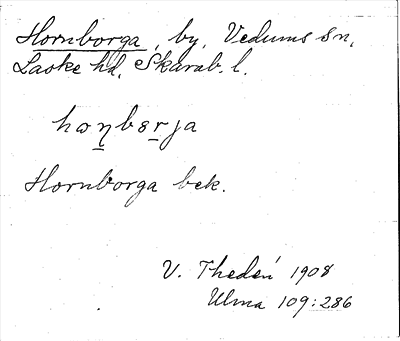 Hornborga, by, Vedums sn,
Laske hd, Skarab. l.
hωɳbɘrja
Hornborga bek.
V. Thedén 1908
Ulma 109:286